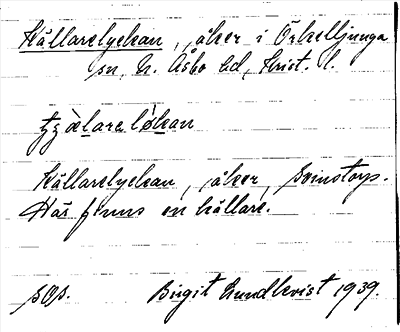 Källarelyckan, åker i Örkelljunga
sn, N. Åsbo hd, Krist. l.
Källarelyckan, åker, Svinstorp.
Här finns en källare.
sgs. Birgit Lundkvist 1939.